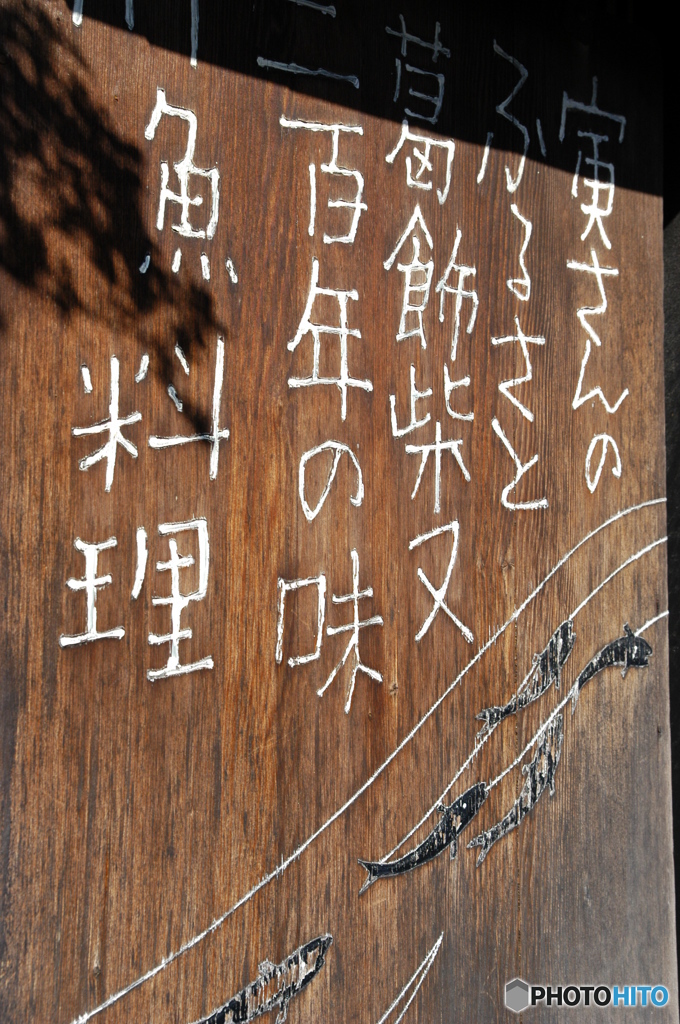 寅さんの
ふるさと
葛飾柴又
二百年の味
川魚料理
PHOTOHITO